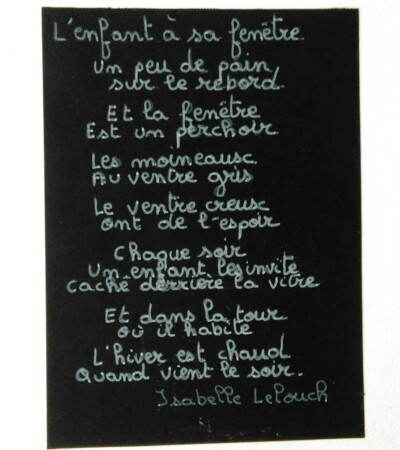 L'enfant à sa fenêtre
Un peu de pain
sur le rebord
Et la fenêtre
Est un perchoir
Les moineaux
Au ventre gris
Le ventre creux
ont de l'espoir
Chaque soir
Un enfant les invite
caché derrière la vitre
Et dans la tour
où il habite
L'hiver est chaud
Quand vient le soir.
Isabelle Lelouch